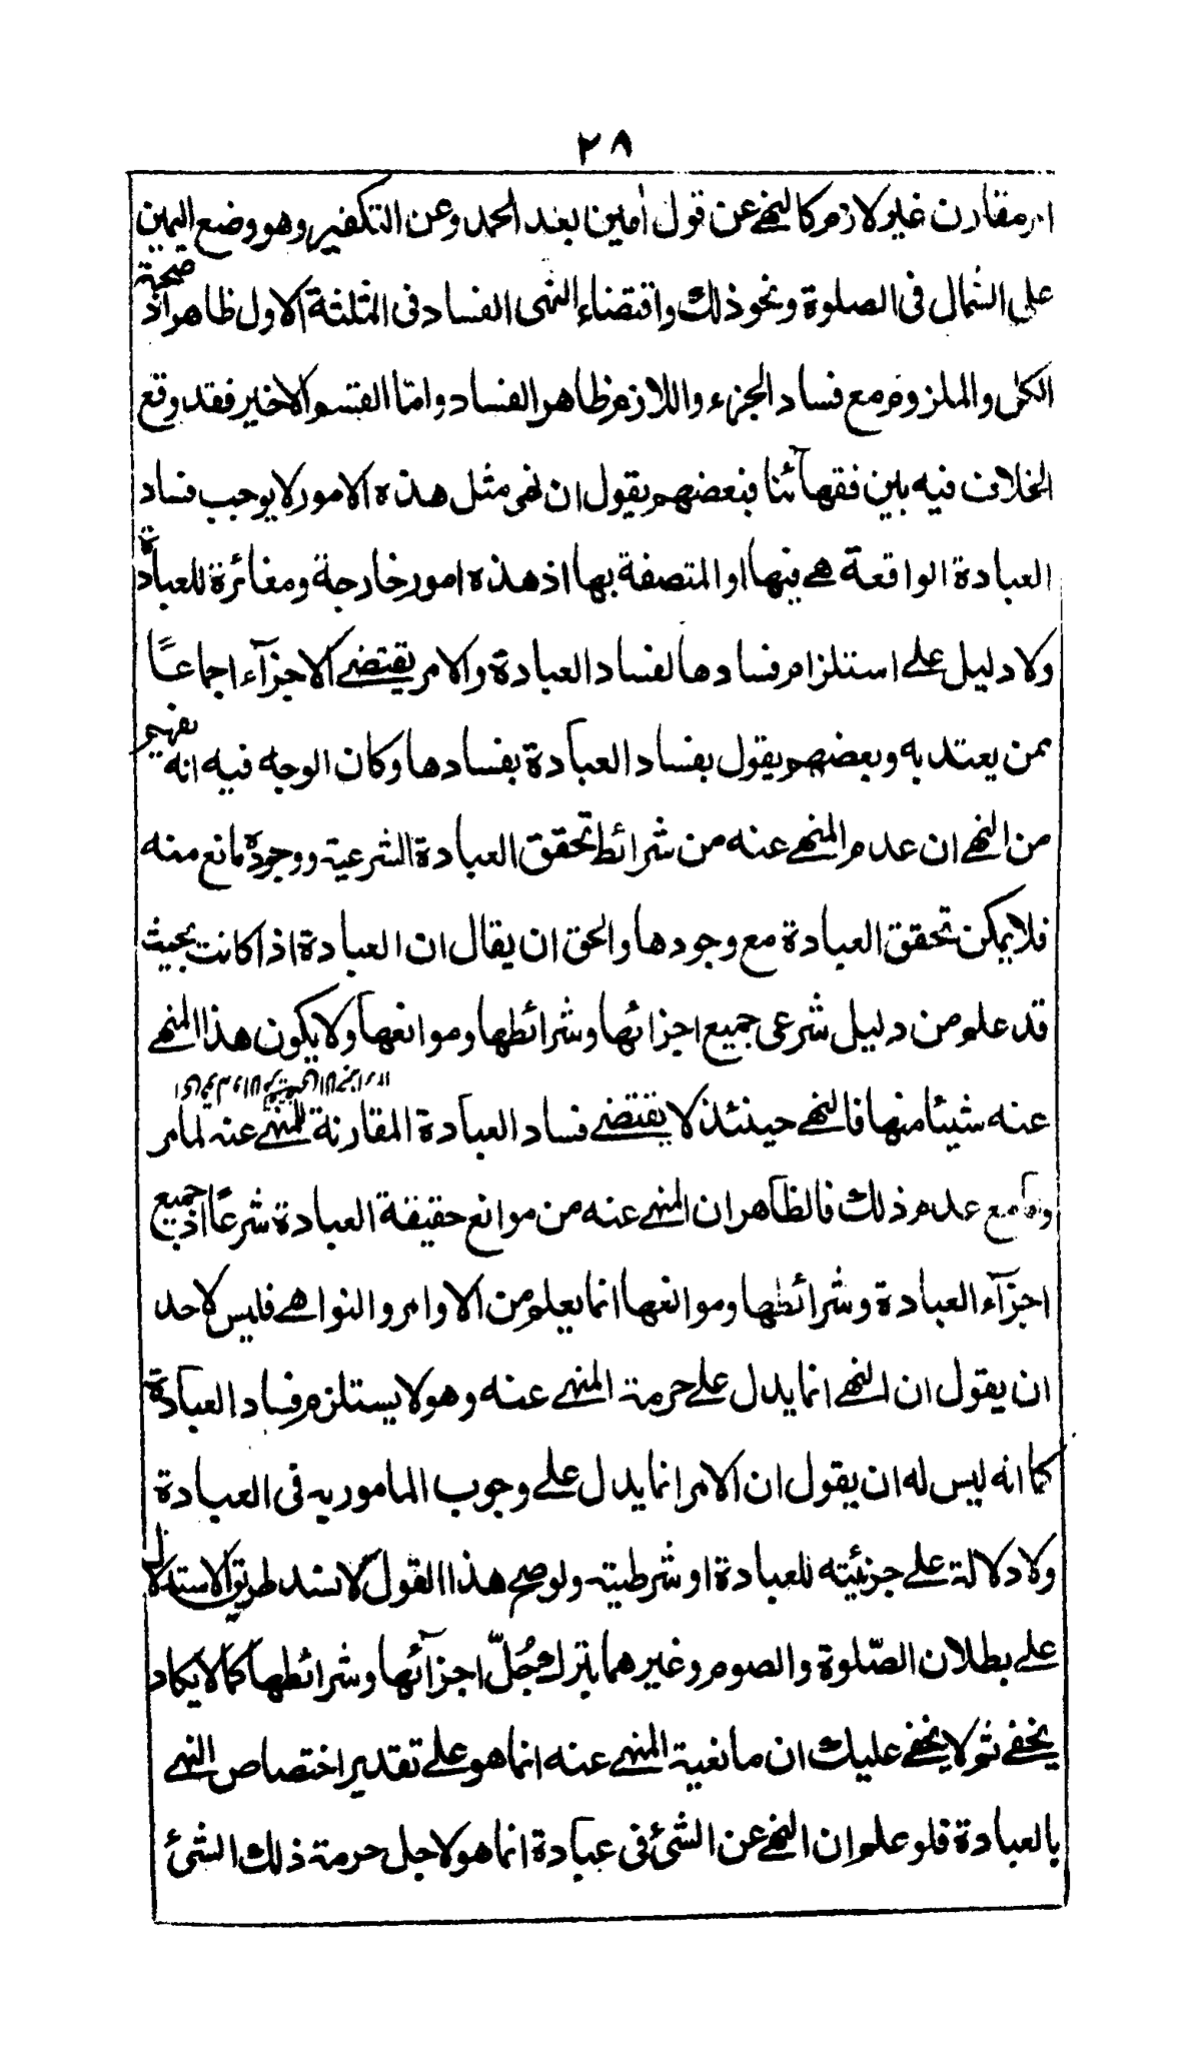 ٢٨
امر مقارن غير لازم كالنهي عن قول امين بعد الحمد وعن التكفير وهو وضع اليمين
على الشمال في الصلوة ونحو ذلك واقتضاء النهى الفساد في الثلثة الاول ظاهر اذ صحة
الكل والملزوم مع فساد الجزء واللازم ظاهر الفساد واما القسم الاخير فقد وقع
الخلاف فيه بين فقهآئنا فبعضهم يقول ان نهى مثل هذه الامور لا يوجب فساد
العبادة الواقعة هي فيها او المتصفة بها اذ هذه امور خارجة ومغائرة للعبادة
ولا دليل على استلزام فسادها لفساد العبادة والامر يقتضي الاجزآء اجماعًا
ممن يعتد به وبعضهم يقول بفساد العبادة بفسادها وكان الوجه فيه انه يفهم
من النهي ان عدم المنهي عنه من شرائط تحقق العبادة الشرعية ووجوده مانع منه
فلا يمكن تحقق العبادة مع وجودها والحق ان يقال ان العبادة اذا كانت بحيث
قد علم من دليل شرعى جميع اجزائها وشرائطها وموانعها ولا يكون هذا المنهي
عنه شيئا منها فالنهي حينئذ لا يقتضي فساد العبادة المقارنة للمنهي عنه لما مر
واما مع عدم ذلك فالظاهر ان المنهي عنه من موانع حقيقة العبادة شرعًا اذ جميع
اجزآء العبادة وشرائطها وموانعها انما يعلم من الاوامر والنواهي فليس لاحد
ان يقول ان النهي انما يدل على حرمة المنهي عنه وهو لا يستلزم فساد العبادة
كما انه ليس له ان يقول ان الامر انما يدل على وجوب المامور به في العبادة
ولا دلالة على جزئيته للعبادة او شرطيته ولو صح هذا القول لانسد طريق الاستدلال
على بطلان الصّلوة والصوم وغيرهما بترك جُلّ اجزآئها وشرائطها كما لا يكاد
يخفي ثم لا يخفي عليك ان مانعية المنهي عنه انما هو على تقدير اختصاص النهي
بالعبادة فلو علم ان النهي عن الشئ في عبادة انما هو لاجل حرمة ذلك الشئ